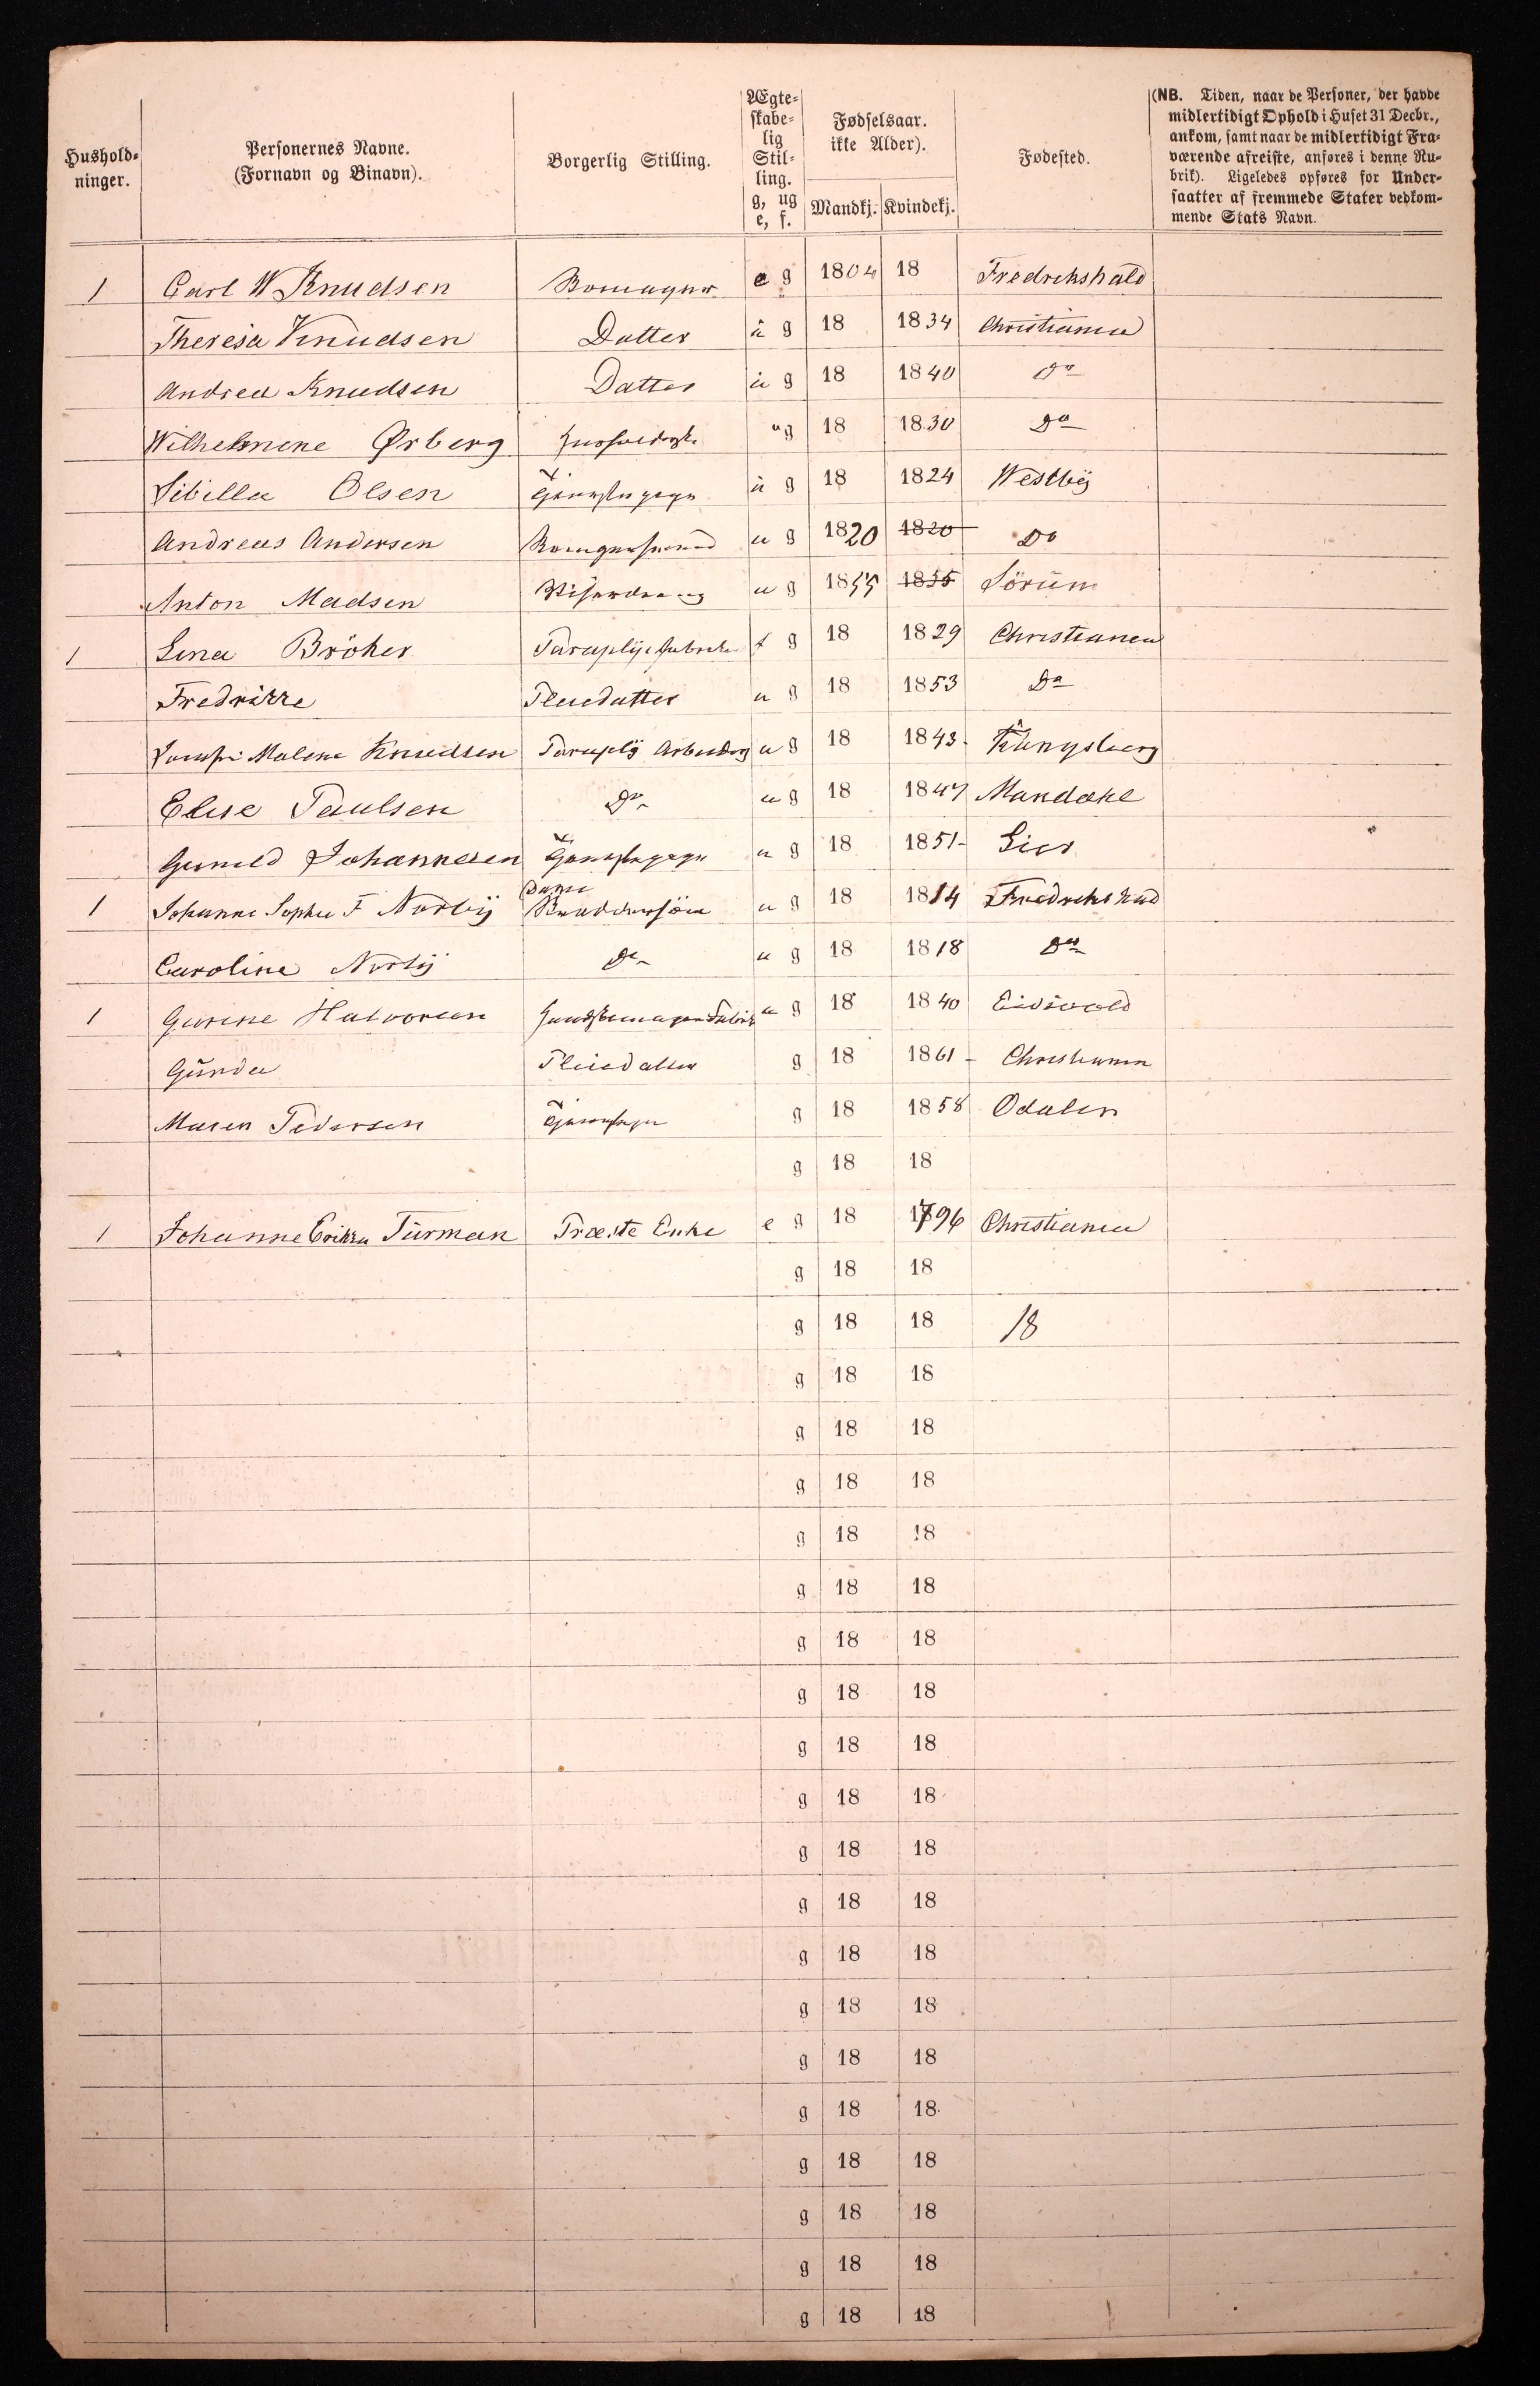 Hushold-
ninger.
Personernes Navne.
(Fornavn og Binavn).
Borgerlig Stilling.
Ægte-
skabe-
lig
Stil-
ling.
g, ug
e, f.
Fødselsaar.
ikke Alder).
Mandkj. Kvindekj.
Fødested.
(NB. Tiden, naar de Personer, der havde
midlertidigt Ophold i Huset 31 Decbr.,
ankom, samt naar de midlertidigt Fra-
værende afreiste, anføres i denne Ru-
brik). Ligeledes opføres for Under-
saatter af fremmede Stater vedkom-
mende Stats Navn.
1 Carl W Knudsen e g 1804 18 Fredrikshald
Theresa Knudsen Datter u g 18 1834 Christiania
Andrea Knudsen Datter u g 18 1840 Do
Wilhelmine Ørberg ug 18 1830 Do
Sibilla Olsen u g 18 1824 Westby
Andreas Andersen u g 1820 1820 Do
Anton Madsen u g 1855 1855 Sørum
1 Lina Bröker f g 18 1829 Christiania
Fredrikke Pleiedatter u g 18 1853 Do
Malene Knudsen Paraply u g 18 1843 Kongsberg
Elise Paulsen Do u g 18 1847 Mandahl
Gunild Johannesen u g 18 1851 Lier
1 Johanne Sophie F Norby u g 18 1814 Fredrikshald
Caroline Norby Do u g 18 1818 Do
1 Gurine Halvorsen u g 18 1840 Eidsvold
Gunda Pleiedatter g 18 1861 Christiania
Maren Pedersen g 18 1858 Odalen
g 18 18
1 Johanne Erikka Turman Præste Enke e g 18 1796 Christiania
g 18 18
g 18 18 18
g 18 18
g 18 18
g 18 18
g 18 18
g 18 18
g 18 18
g 18 18
g 18 18
g 18 18
g 18 18
g 18 18
g 18 18
g 18 18
g 18 18
g 18 18
g 18 18
g 18 18
g 18 18
g 18 18